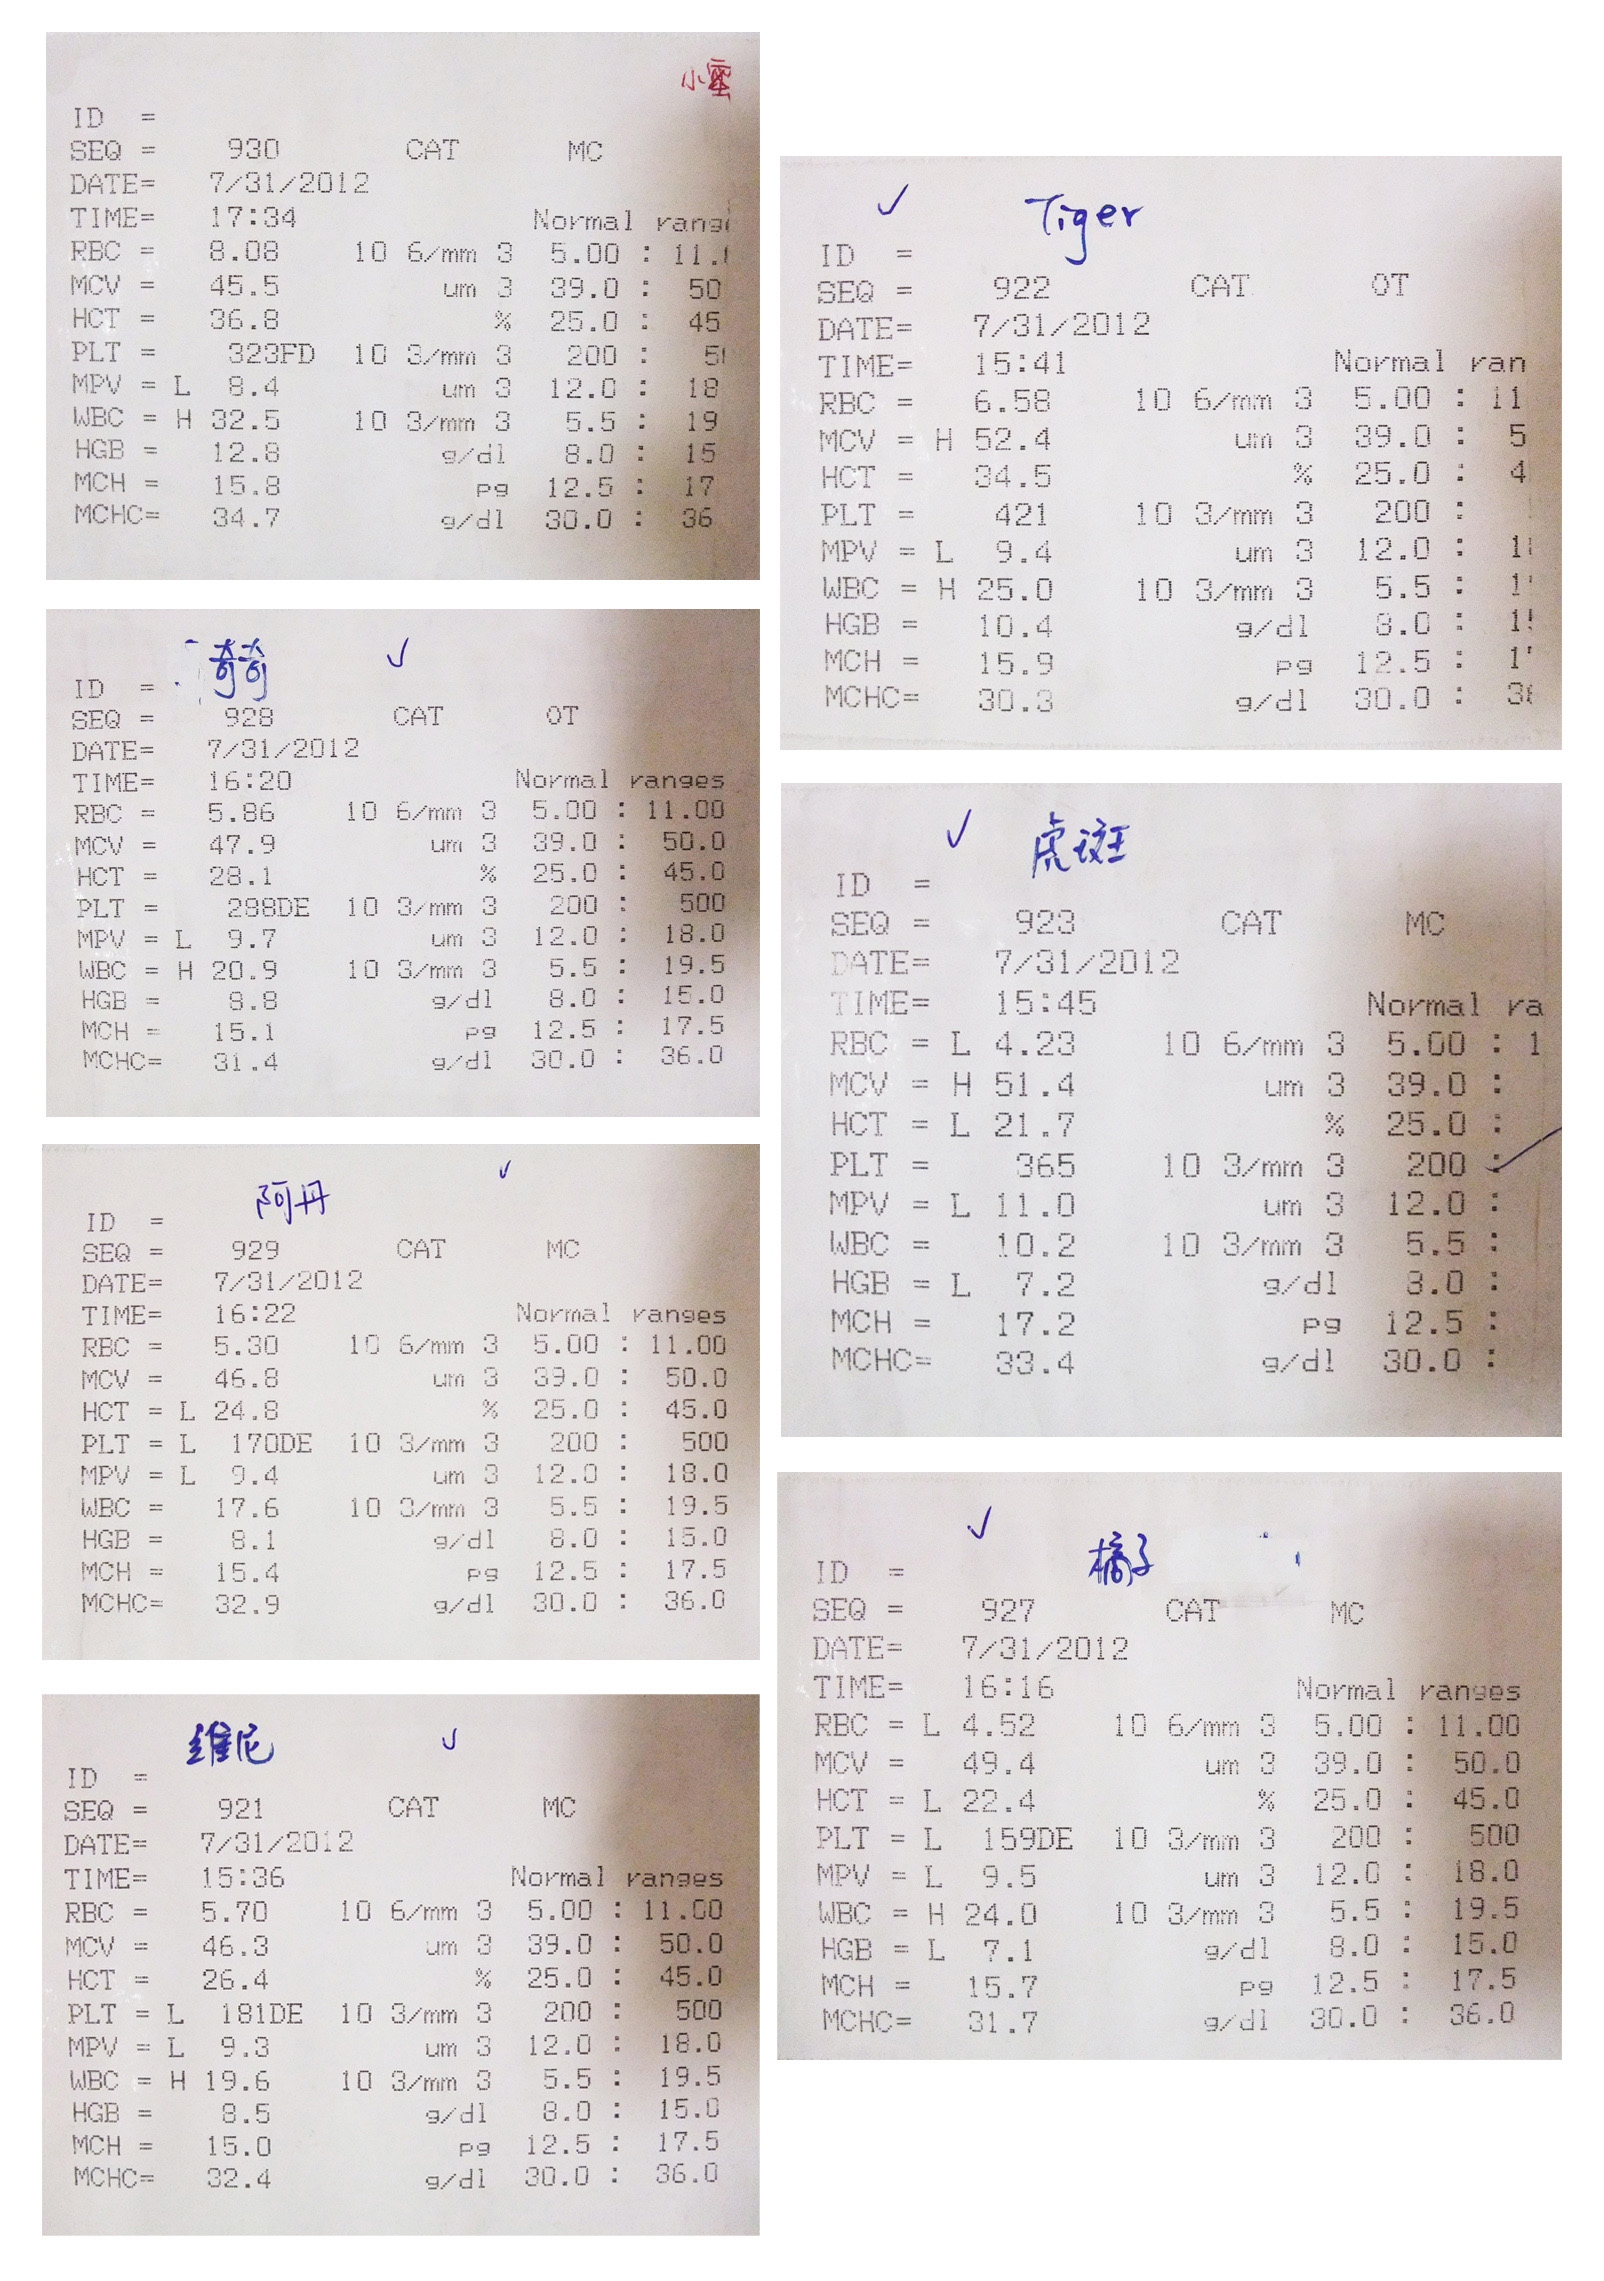 小蜜
ID =
SEQ = 930 CAT MC
DATE= 7/31/2012
TIME= 17:34 Normal range
RBC = 8.08 10 6/mm 3 5.00 : 11.
MCV = 45.5 um 3 39.0 : 50
HCT = 36.8 % 25.0 : 45
PLT = 323FD 10 3/mm 3 200 : 5
MPV = L 8.4 um 3 12.0 : 18
WBC = H 32.5 10 3/mm 3 5.5 : 19
HGB = 12.8 g/dl 8.0 : 15
MCH = 15.8 pg 12.5 : 17
MCHC= 34.7 g/dl 30.0 : 36
奇奇
ID =
SEQ = 928 CAT OT
DATE= 7/31/2012
TIME= 16:20 Normal ranges
RBC = 5.86 10 6/mm 3 5.00 : 11.00
MCV = 47.9 um 3 39.0 : 50.0
HCT = 28.1 % 25.0 : 45.0
PLT = 288DE 10 3/mm 3 200 : 500
MPV = L 9.7 um 3 12.0 : 18.0
WBC = H 20.9 10 3/mm 3 5.5 : 19.5
HGB = 8.8 g/dl 8.0 : 15.0
MCH = 15.1 pg 12.5 : 17.5
MCHC= 31.4 g/dl 30.0 : 36.0
阿丹
ID =
SEQ = 929 CAT MC
DATE= 7/31/2012
TIME= 16:22 Normal ranges
RBC = 5.30 10 6/mm 3 5.00 : 11.00
MCV = 46.8 um 3 39.0 : 50.0
HCT = L 24.8 % 25.0 : 45.0
PLT = L 170DE 10 3/mm 3 200 : 500
MPV = L 9.4 um 3 12.0 : 18.0
WBC = 17.6 10 3/mm 3 5.5 : 19.5
HGB = 8.1 g/dl 8.0 : 15.0
MCH = 15.4 pg 12.5 : 17.5
MCHC= 32.9 g/dl 30.0 : 36.0
维尼
ID =
SEQ = 921 CAT MC
DATE= 7/31/2012
TIME= 15:36 Normal ranges
RBC = 5.70 10 6/mm 3 5.00 : 11.00
MCV = 46.3 um 3 39.0 : 50.0
HCT = 26.4 % 25.0 : 45.0
PLT = L 181DE 10 3/mm 3 200 : 500
MPV = L 9.3 um 3 12.0 : 18.0
WBC = H 19.6 10 3/mm 3 5.5 : 19.5
HGB = 8.5 g/dl 8.0 : 15.0
MCH = 15.0 pg 12.5 : 17.5
MCHC= 32.4 g/dl 30.0 : 36.0
Tiger
ID =
SEQ = 922 CAT OT
DATE= 7/31/2012
TIME= 15:41 Normal ran
RBC = 6.58 10 6/mm 3 5.00 : 11
MCV = H 52.4 um 3 39.0 : 5
HCT = 34.5 % 25.0 : 4
PLT = 421 10 3/mm 3 200 :
MPV = L 9.4 um 3 12.0 : 1
WBC = H 25.0 10 3/mm 3 5.5 : 1
HGB = 10.4 g/dl 8.0 : 1
MCH = 15.9 pg 12.5 : 1
MCHC= 30.3 g/dl 30.0 : 3
虎斑
ID =
SEQ = 923 CAT MC
DATE= 7/31/2012
TIME= 15:45 Normal ra
RBC = L 4.23 10 6/mm 3 5.00 : 1
MCV = H 51.4 um 3 39.0 :
HCT = L 21.7 % 25.0 :
PLT = 365 10 3/mm 3 200 :
MPV = L 11.0 um 3 12.0 :
WBC = 10.2 10 3/mm 3 5.5 :
HGB = L 7.2 g/dl 8.0 :
MCH = 17.2 pg 12.5 :
MCHC= 33.4 g/dl 30.0 :
橘子
ID =
SEQ = 927 CAT MC
DATE= 7/31/2012
TIME= 16:16 Normal ranges
RBC = L 4.52 10 6/mm 3 5.00 : 11.00
MCV = 49.4 um 3 39.0 : 50.0
HCT = L 22.4 % 25.0 : 45.0
PLT = L 159DE 10 3/mm 3 200 : 500
MPV = L 9.5 um 3 12.0 : 18.0
WBC = H 24.0 10 3/mm 3 5.5 : 19.5
HGB = L 7.1 g/dl 8.0 : 15.0
MCH = 15.7 pg 12.5 : 17.5
MCHC= 31.7 g/dl 30.0 : 36.0